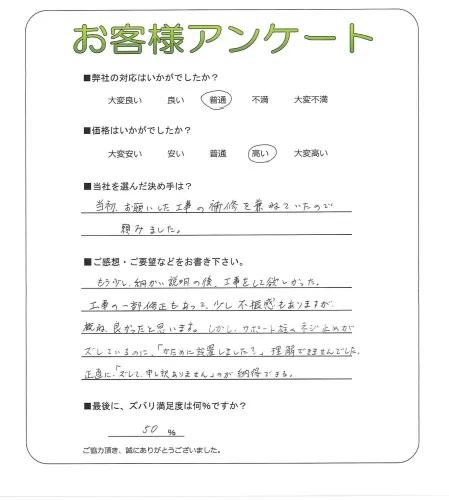 お客様アンケート
■弊社の対応はいかがでしたか?
大変良い 良い 普通 不満 大変不満
■価格はいかがでしたか?
大変安い 安い 普通 高い 大変高い
■当社を選んだ決め手は?
当初、お願いした工事の補修を兼ねていたので
頼みました。
■ご感想・ご要望などをお書き下さい。
もう少し、細かい説明の後、工事をして欲しかった。
工事の一部修正もあって、少し不振感もありますが、
概ね、良かったと思います。しかし、サポート板のネジ止めが
ズレているのに、「かために設置しました?」理解できませんでした。
正直に、「ズレて、申し訳ありません」のが納得できる。
■最後に、ズバリ満足度は何%ですか?
50 %
ご協力頂き、誠にありがとうございました。